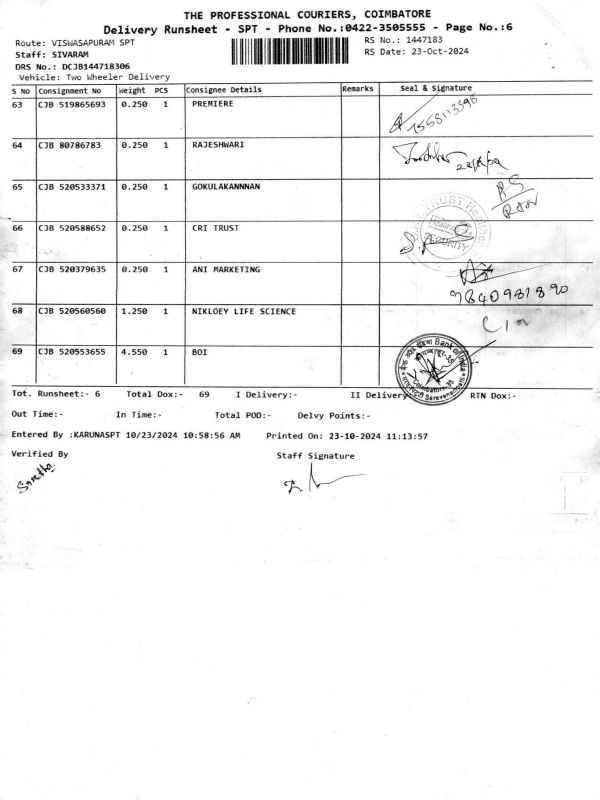 THE PROFESSIONAL COURIERS, COIMBATORE
Delivery Runsheet - SPT - Phone No.:0422-3505555 - Page No.:6
Route: VISWASAPURAM SPT
RS No.: 1447183
Staff: SIVARAM
RS Date: 23-Oct-2024
DRS No.: DCJB144718306
Vehicle: Two Wheeler Delivery
S No Consignment No Weight PCS Consignee Details Remarks Seal & Signature
63 CJB 519865693 0.250 1 PREMIERE
64 CJB 80786783 0.250 1 RAJESHWARI
65 CJB 520533371 0.250 1 GOKULAKANNNAN
66 CJB 520588652 0.250 1 CRI TRUST
SECURITY
67 CJB 520379635 0.250 1 ANI MARKETING
9840981890
68 CJB 520560560 1.250 1 NIKLOEY LIFE SCIENCE
69 CJB 520553655 4.550 1 BOI
Bank of India
Coimbatore-35
Tot. Runsheet:- 6 Total Dox:- 69 I Delivery:- II Delivery RTN Dox:-
Out Time:- In Time:- Total POD:- Delvy Points:-
Entered By :KARUNASPT 10/23/2024 10:58:56 AM Printed On: 23-10-2024 11:13:57
Verified By Staff Signature